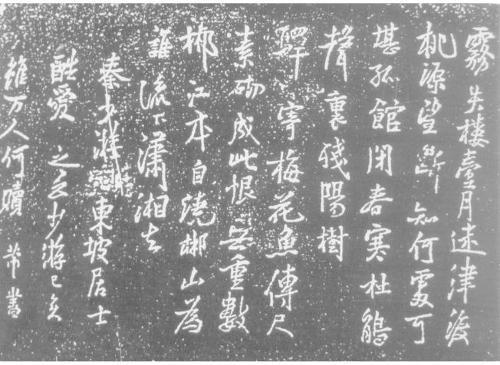 霧失樓臺月遠津渡
桃源望斷知何處可
堪孤館閉春寒杜鵑
聲裏殘陽樹
驛寄梅花魚傳尺
素砌成此恨無重數
郴江本自繞郴山為
誰流下瀟湘去
秦少游詞東坡居士
酷愛之云少游已矣
雖万人何贖芾書